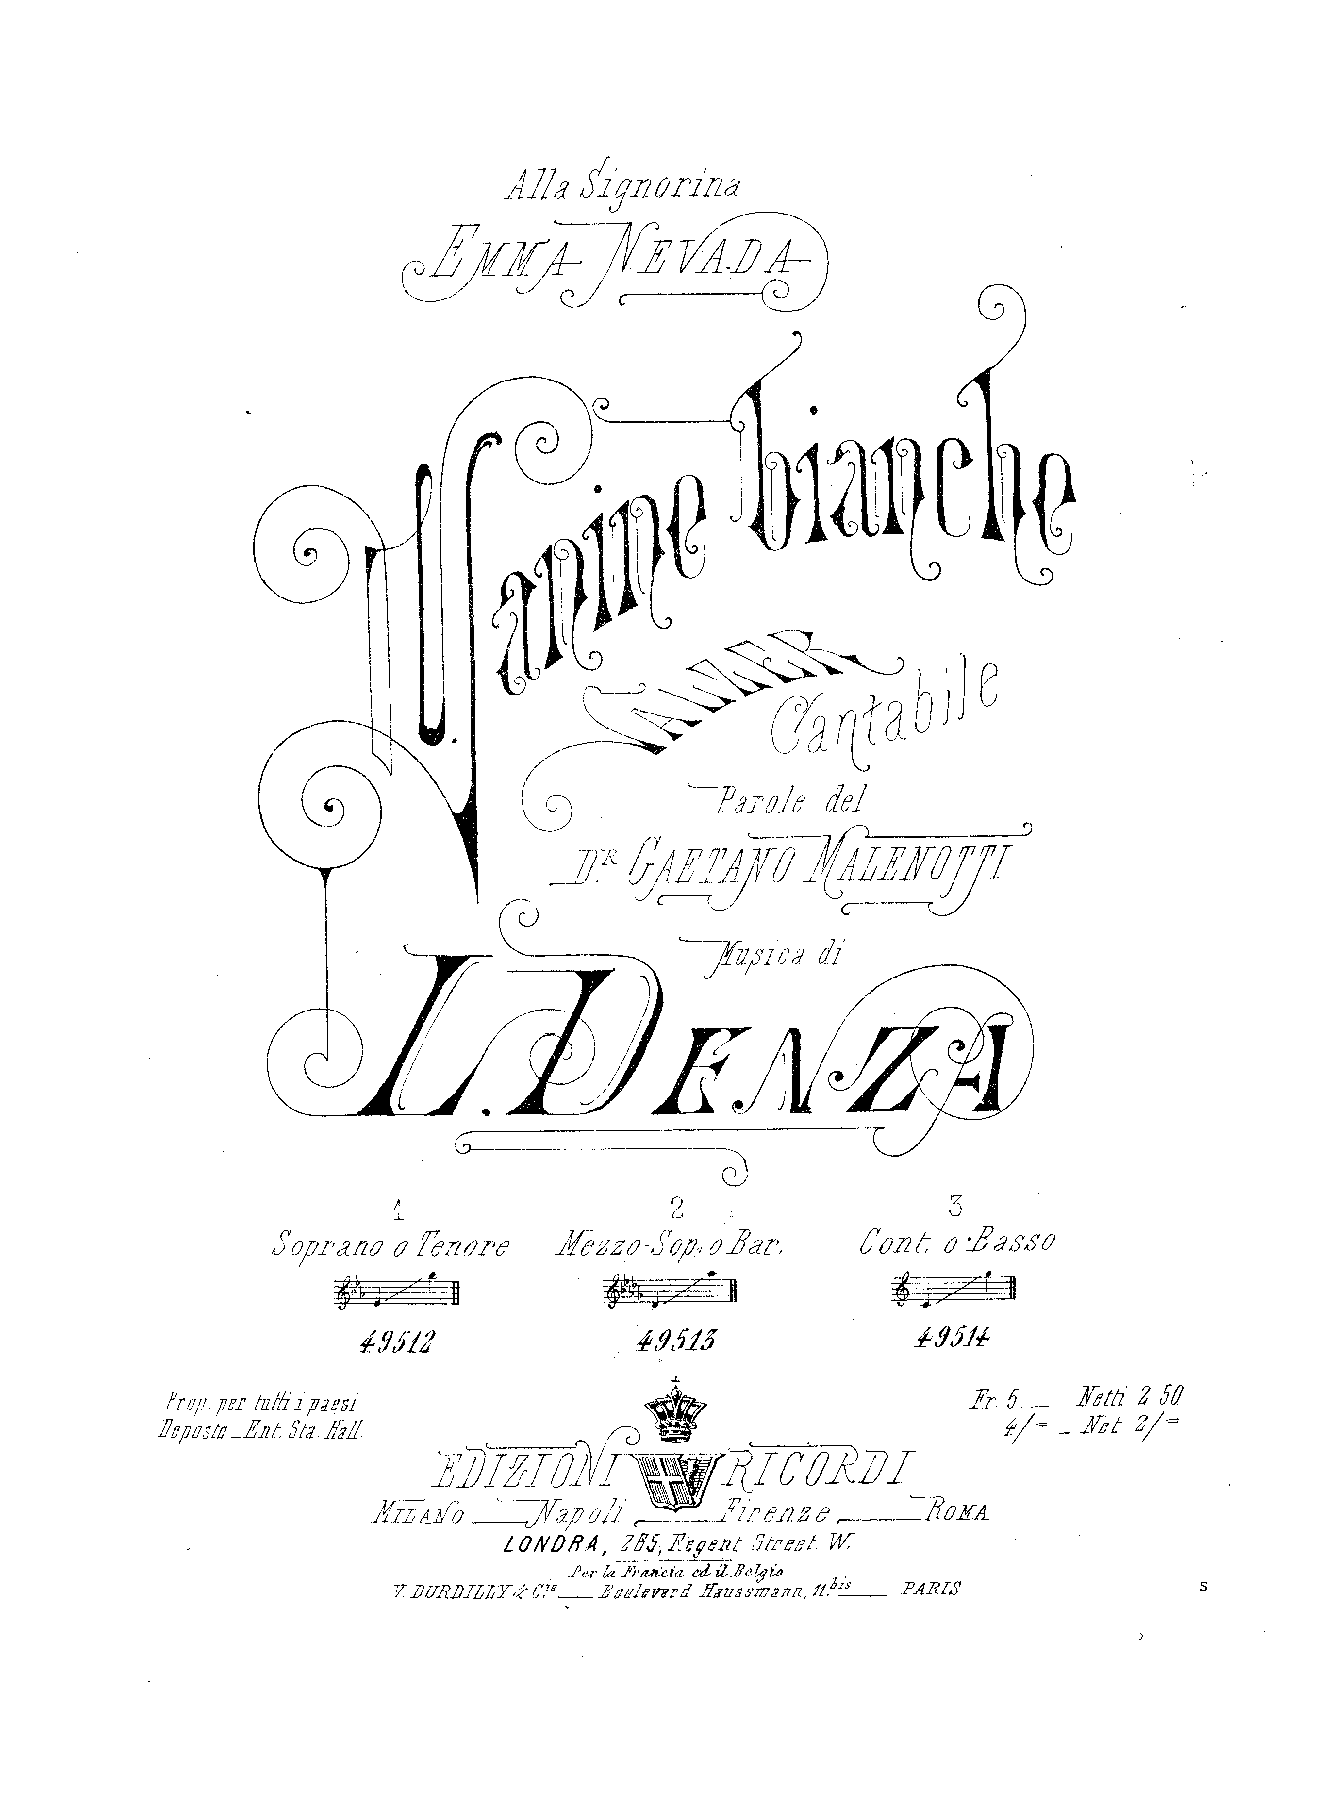 Alla Signorina
EMMA NEVADA
Manine bianche
VALZER
Cantabile
Parole del
DR. GAETANO MALENOTTI
Musica di
L. DENZA
1 2 3
Soprano o Tenore Mezzo-Sop. o Bar. Cont. o Basso
49512 49513 49514
Prop. per tutti i paesi
Deposto _ Ent. Sta. Hall.
Fr. 5. _ Netti 2 50
4/= _ Net 2/=
EDIZIONI RICORDI
MILANO Napoli Firenze ROMA
LONDRA, 265, Regent Street W.
Per la Francia ed il Belgio
V. DURDILLY & Cie. Boulevard Haussmann, 11.bis PARIS
S